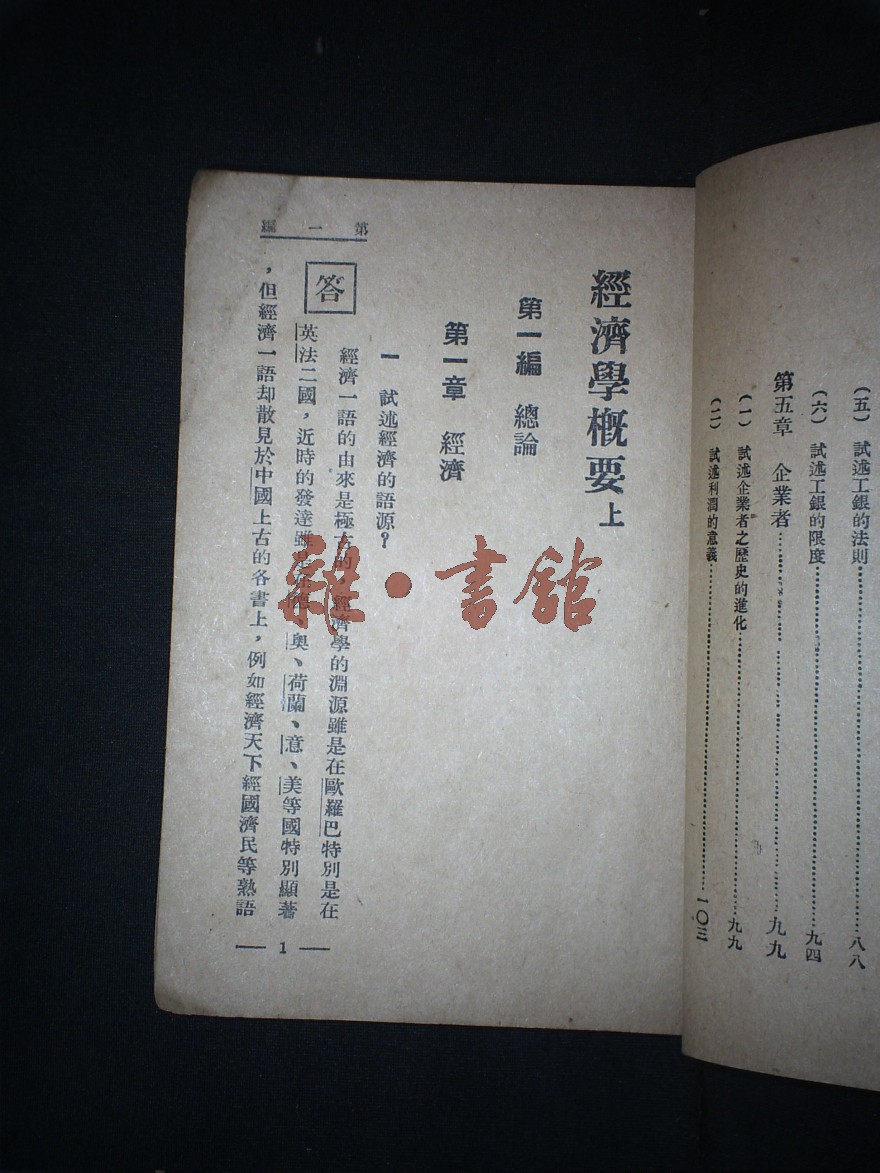 (五) 試述工銀的法則……八八
(六) 試述工銀的限度……九四
第五章 企業者……九九
(一) 試述企業者之歷史的進化……九九
(二) 試述利潤的意義……一〇三
經濟學概要 上
第一編 總論
第一章 經濟
一 試述經濟的語源?
答
經濟一語的由來是極古的,經濟學的淵源雖是在歐羅巴特別是在
英法二國,近時的發達雖是、奧、荷蘭、意、美等國特別顯著
,但經濟一語却散見於中國上古的各書上,例如經濟天下經國濟民等熟語
第一編
1
雜·書館